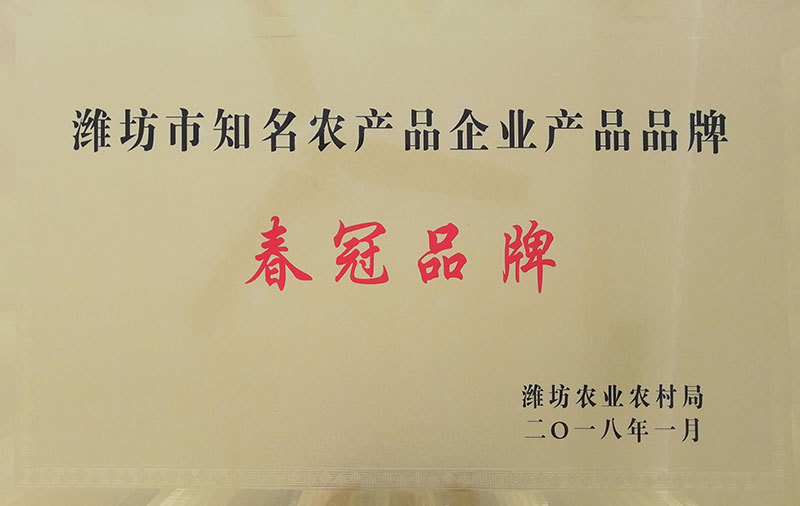 潍坊市知名农产品企业产品品牌
春冠品牌
潍坊农业农村局
二〇一八年一月